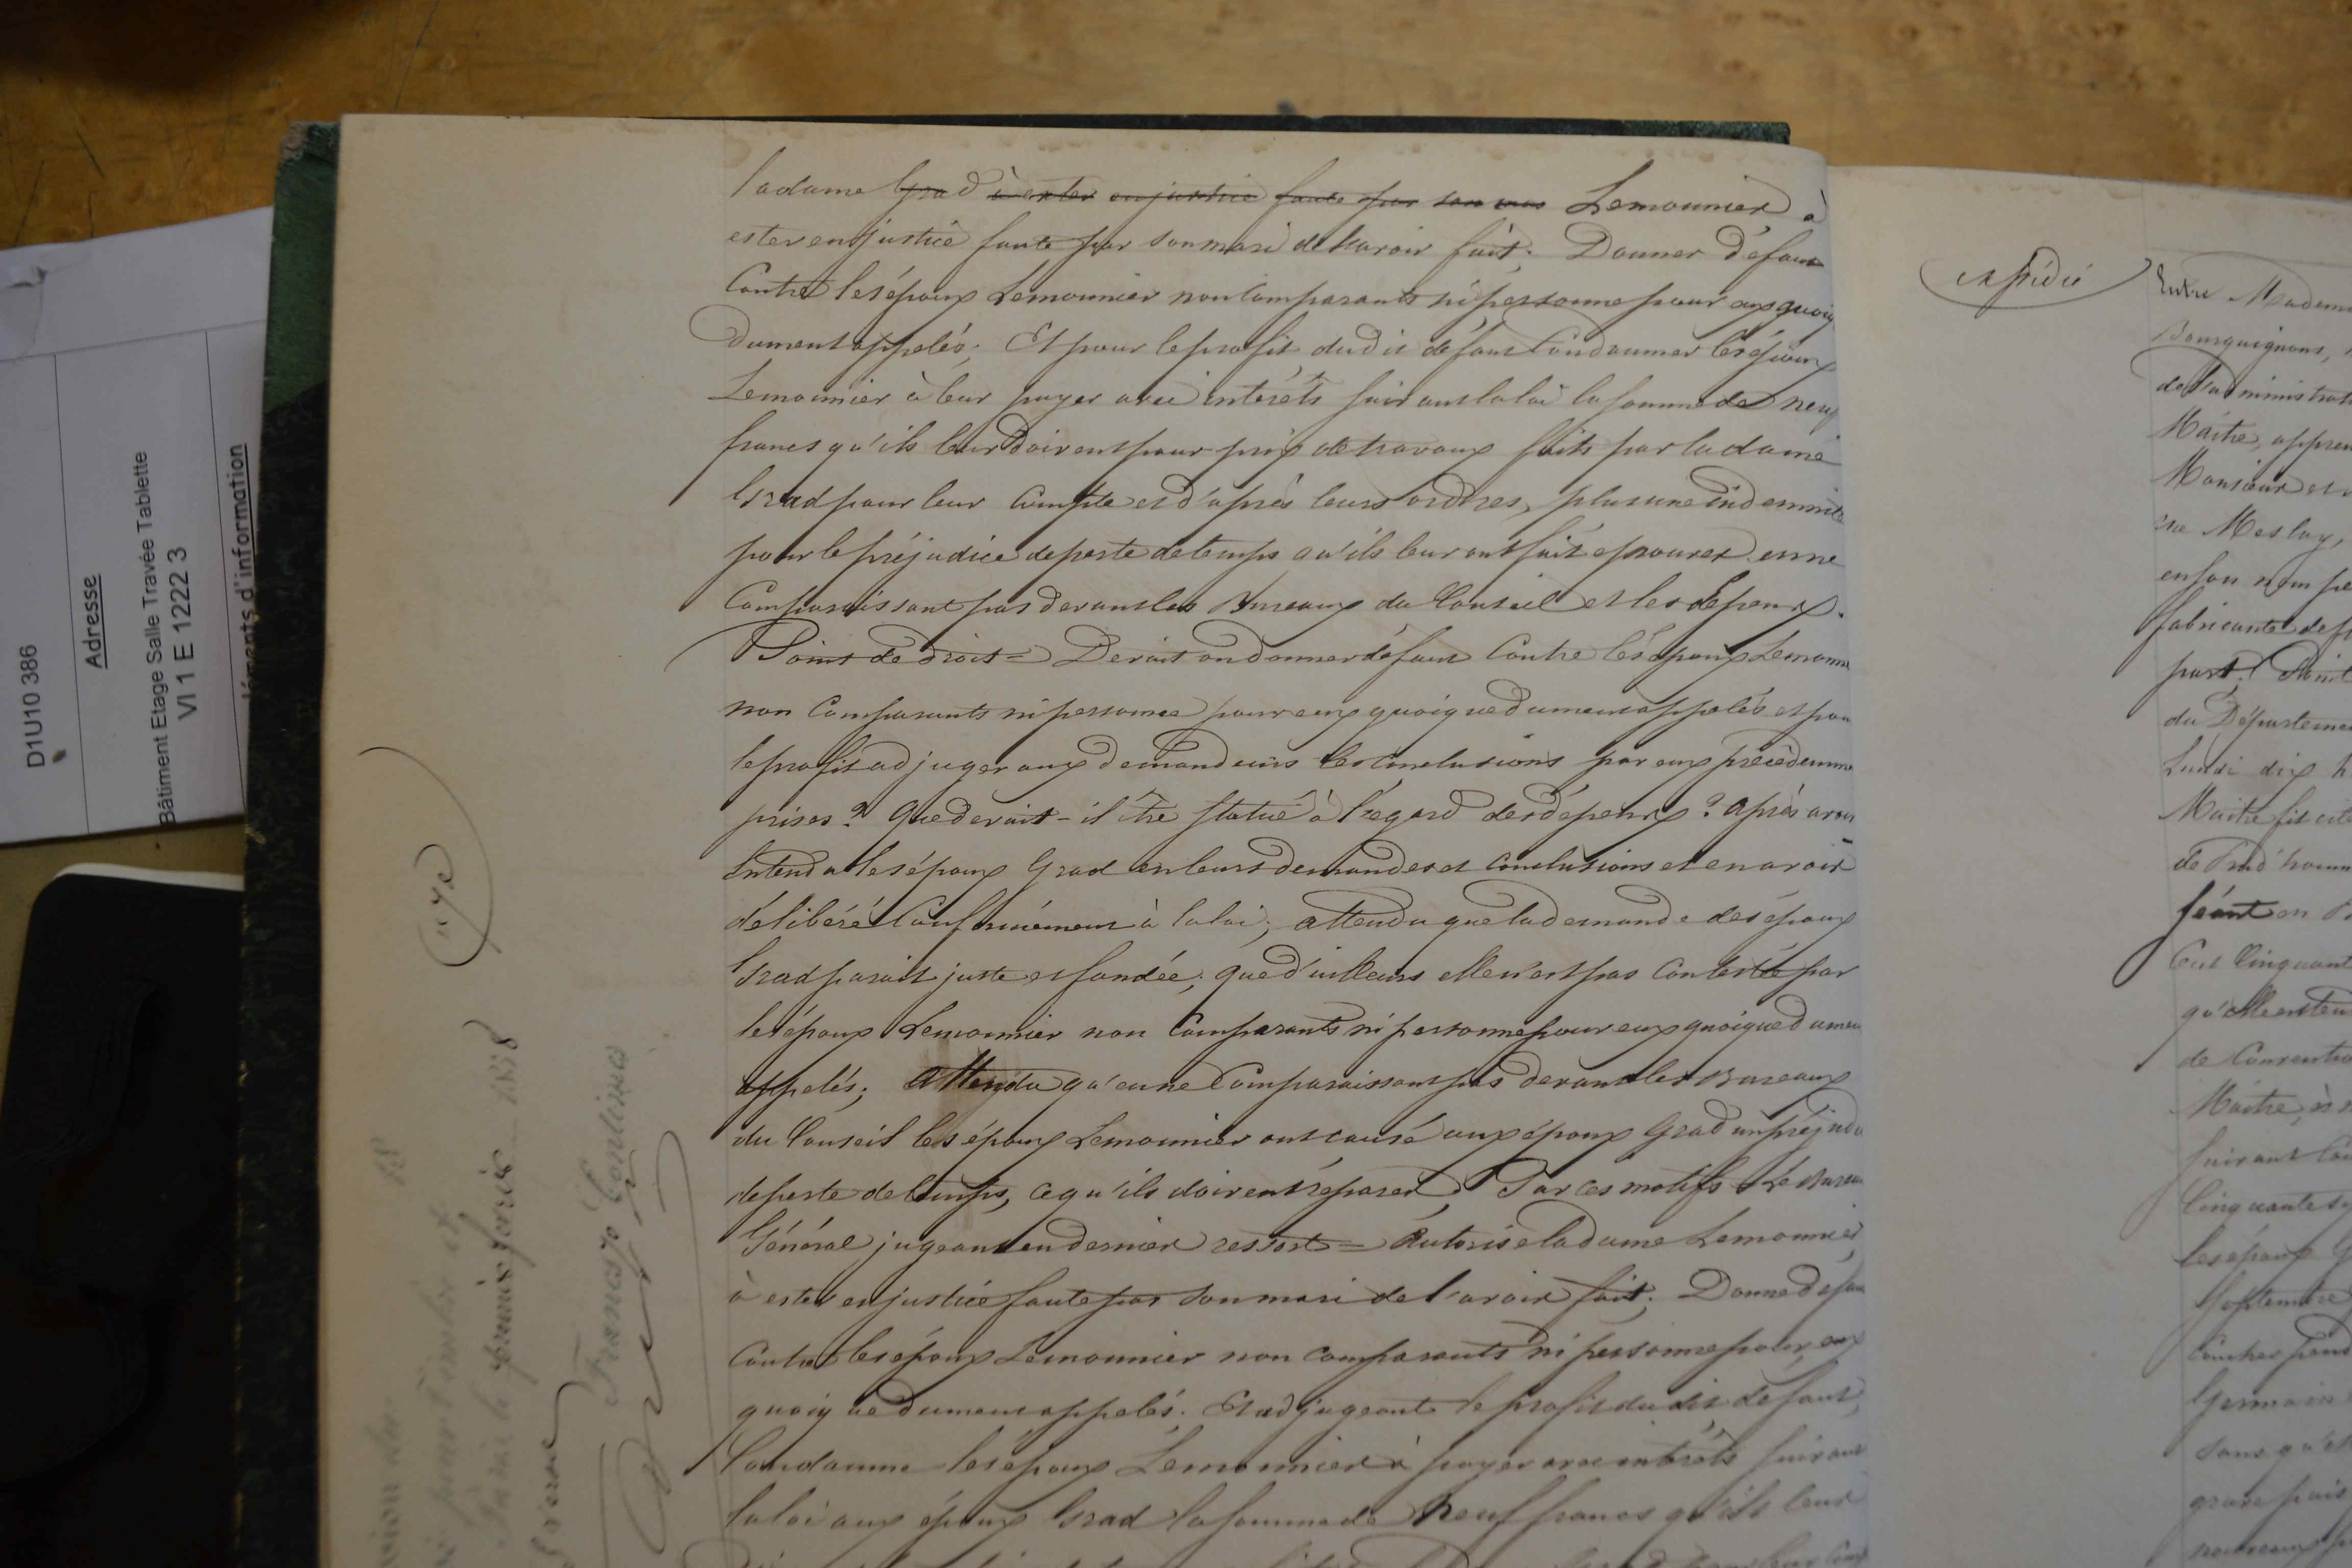 ladame Grad à ester en justice faute par son mari Lemonnier à
ester en justice faute par son mari de l'avoir fait; Donner défaut
Contre les époux Lemonnier non Comparants ni personne pour eux quoiq
dument appelés; Et pour le profit dudit défaut Condamner les époux
Lemonnier à leur payer avec intérêts suivant la loi la somme de neuf
francs qu'ils leur doivent pour prix de travaux faits par la dame
Grad pour leur Compte et d'après leurs ordres, plus une indemnité
pour le préjudice de perte de temps qu'ils leur ont fait éprouver en ne
Comparaissant pas devant les Bureaux du Conseil et les dépens.
Point de droit = Devait on donner défaut Contre les époux Lemonn
non Comparants ni personne pour eux quoique dument appelés et pou
le profit adjuger aux demandeurs les Conclusions par eux précédemme
prises? Que devait-il être statué à l'égard des dépens? Après avoir
Entendu les époux Grad en leurs demandes et Conclusions et en avoir
délibéré Conformément à la loi; attendu que la demande des époux
Grad parait juste et fondée; que d'ailleurs elle n'est pas Contestée par
les époux Lemonnier non Comparants ni personne pour eux quoique dumen
appelés; Attendu qu'en ne Comparaissant pas devant les Bureaux
du Conseil les époux Lemonnier ont causé aux époux Grad un préjudi
de perte de temps, ce qu'ils doivent réparer; Par ces motifs Le Bureau
Général jugeant en dernier ressort = Autorise la dame Lemonnier
à ester en justice faute par son mari de l'avoir fait; Donne défau
Contre les époux Lemonnier non Comparants ni personne pour eux
quoique dument appelés; Et adjugeant le profit dudit défaut,
Condamne les époux Lemonnier à payer avec intérêts suivant
la loi aux époux Grad la somme de Neuf francs qu'ils leur
expédié
Entre Madem
Bourguignons,
de l'administrat
Maître, appren
Monsieur et
rue Meslay,
en son nom pe
fabricante de f
part; Point
du Départemen
Lundi dix h
Maitre fit cit
de Prud'homm
séant en
Cent Cinquant
de Convention
Maître, ès n
suivant Con
Cinquante s
les époux G
Septembre
Coucher pend
Germain
sans qu'el
D1U10 386
Adresse
Bâtiment Etage Salle Travée Tablette
VI 1 E 1222 3
éléments d'information
1858
Francs Centimes